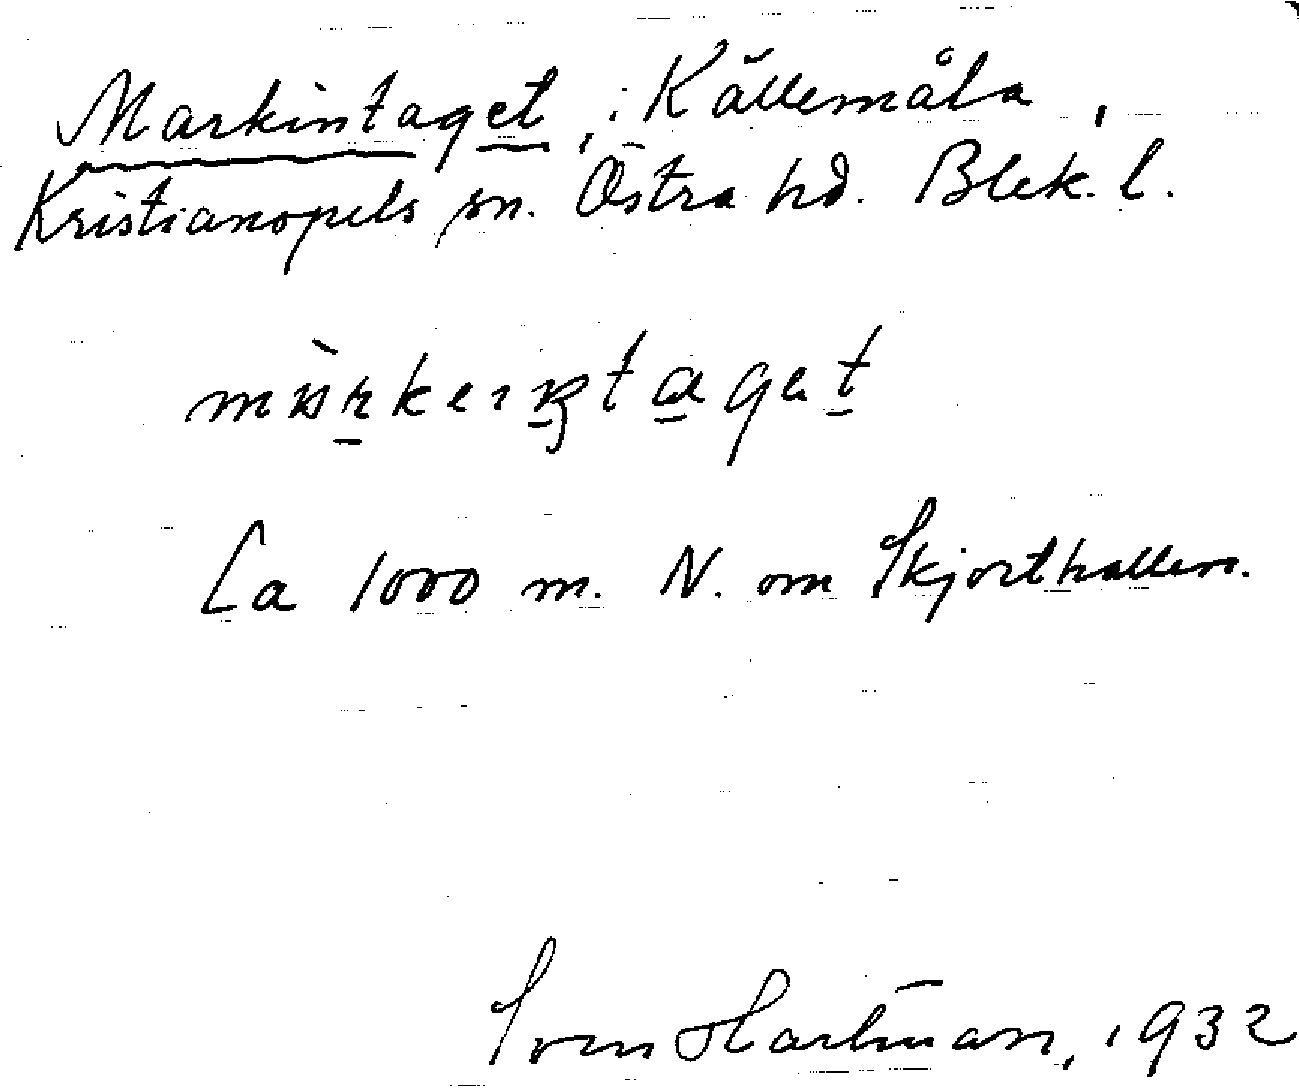 Markintaget, i Källemåla,
Kristianopels sn. Östra hd. Blek. l.
Ca 1000 m. N. om Skjorthallen.
Sven Hartman, 1932